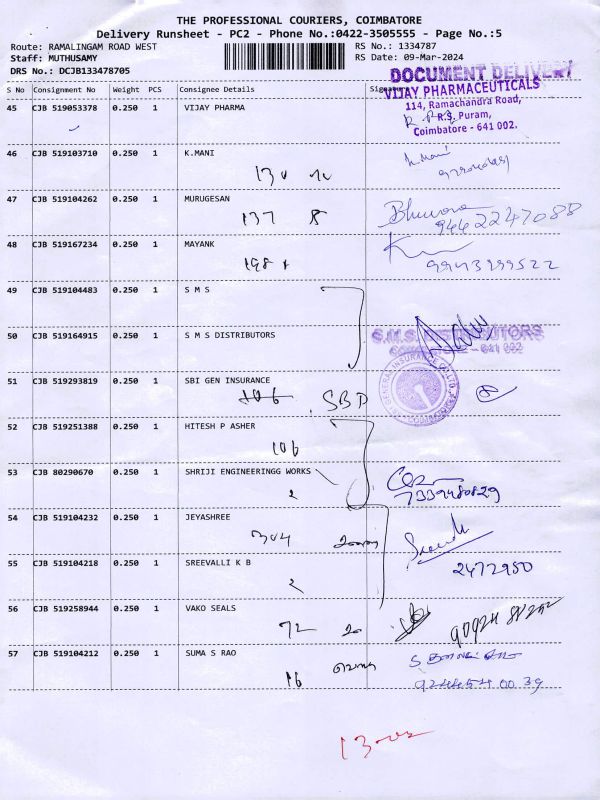 THE PROFESSIONAL COURIERS, COIMBATORE
Delivery Runsheet - PC2 - Phone No.:0422-3505555 - Page No.:5
Route: RAMALINGAM ROAD WEST RS No.: 1334787
Staff: MUTHUSAMY RS Date: 09-Mar-2024
DRS No.: DCJB133478705
DOCUMENT DELIVERY
S No Consignment No Weight PCS Consignee Details Signature
VIJAY PHARMACEUTICALS
114, Ramachandra Road,
R.S. Puram,
Coimbatore - 641 002.
45 CJB 519053378 0.250 1 VIJAY PHARMA
46 CJB 519103710 0.250 1 K.MANI
130
47 CJB 519104262 0.250 1 MURUGESAN
137 Bhuvana
9442247088
48 CJB 519167234 0.250 1 MAYANK
198
49 CJB 519104483 0.250 1 S M S
50 CJB 519164915 0.250 1 S M S DISTRIBUTORS
S.M.S. DISTRIBUTORS
COIMBATORE - 641 002
51 CJB 519293819 0.250 1 SBI GEN INSURANCE
106 SBD
52 CJB 519251388 0.250 1 HITESH P ASHER
106
53 CJB 80290670 0.250 1 SHRIJI ENGINEERINGG WORKS
2 7339480829
54 CJB 519104232 0.250 1 JEYASHREE
304
55 CJB 519104218 0.250 1 SREEVALLI K B
2 2472950
56 CJB 519258944 0.250 1 VAKO SEALS
72 20
57 CJB 519104212 0.250 1 SUMA S RAO
16 9244540039